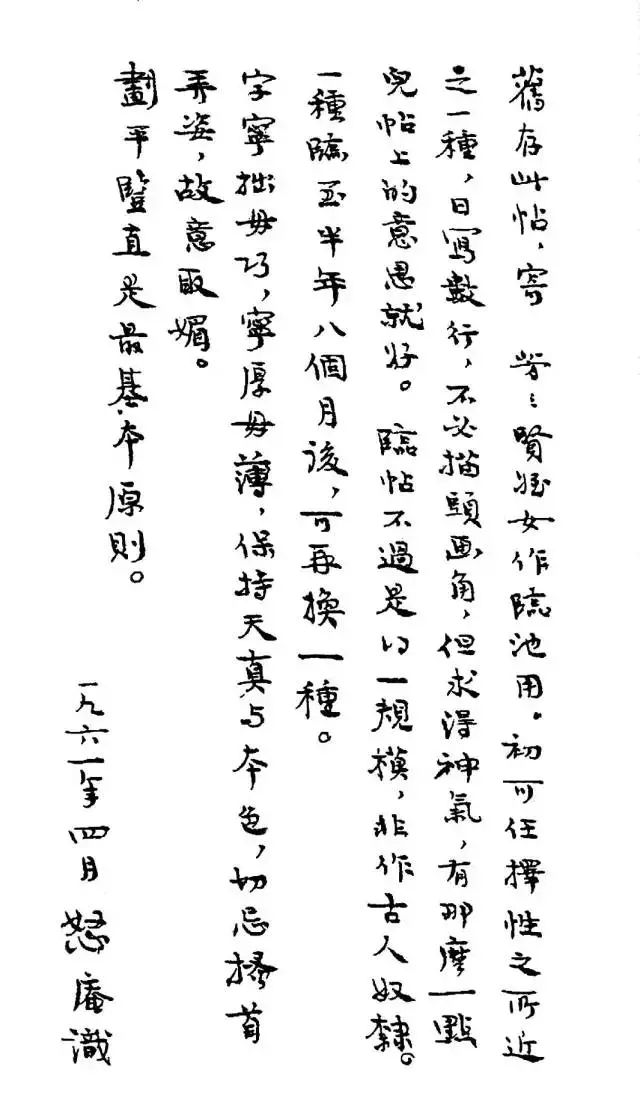 舊存此帖，寄　勞〻賢姪女作臨池用。初可任擇性之所近
之一種，日寫數行，不必描頭畫角，但求得神氣，有那麼一點
兒帖上的意思就好。臨帖不過是得一規模，非作古人奴隸。
一種臨至半年八個月後，可再換一種。
字寧拙毋巧，寧厚毋薄，保持天真与本色，切忌搔首
弄姿，故意取媚。
劃平豎直是最基本原則。
一九六一年四月　怒庵識